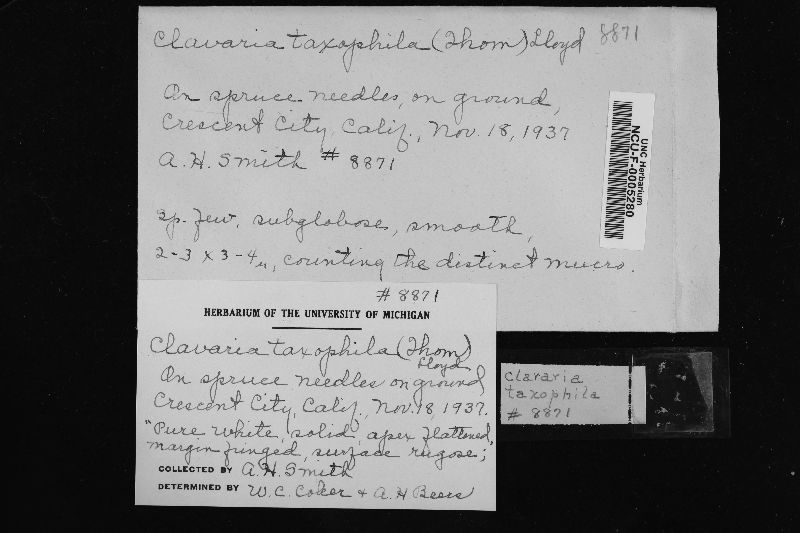 Clavaria taxophila (Thom) Lloyd 8871
On spruce needles, on ground,
Crescent City, Calif., Nov. 18, 1937
A. H. Smith # 8871
Sp. few, subglobose, smooth,
2-3 x 3-4µ, counting the distinct mucro.
UNC Herbarium
NCU-F-0005280
# 8871
HERBARIUM OF THE UNIVERSITY OF MICHIGAN
Clavaria taxophila (Thom)
Lloyd
On spruce needles on ground,
Crescent City, Calif., Nov. 18 1937.
"Pure white, solid, apex flattened,
margin funged, surface rugose;
COLLECTED BY A. H. Smith
DETERMINED BY W. C. Coker + A. H Beers
Clavaria
taxophila
# 8871